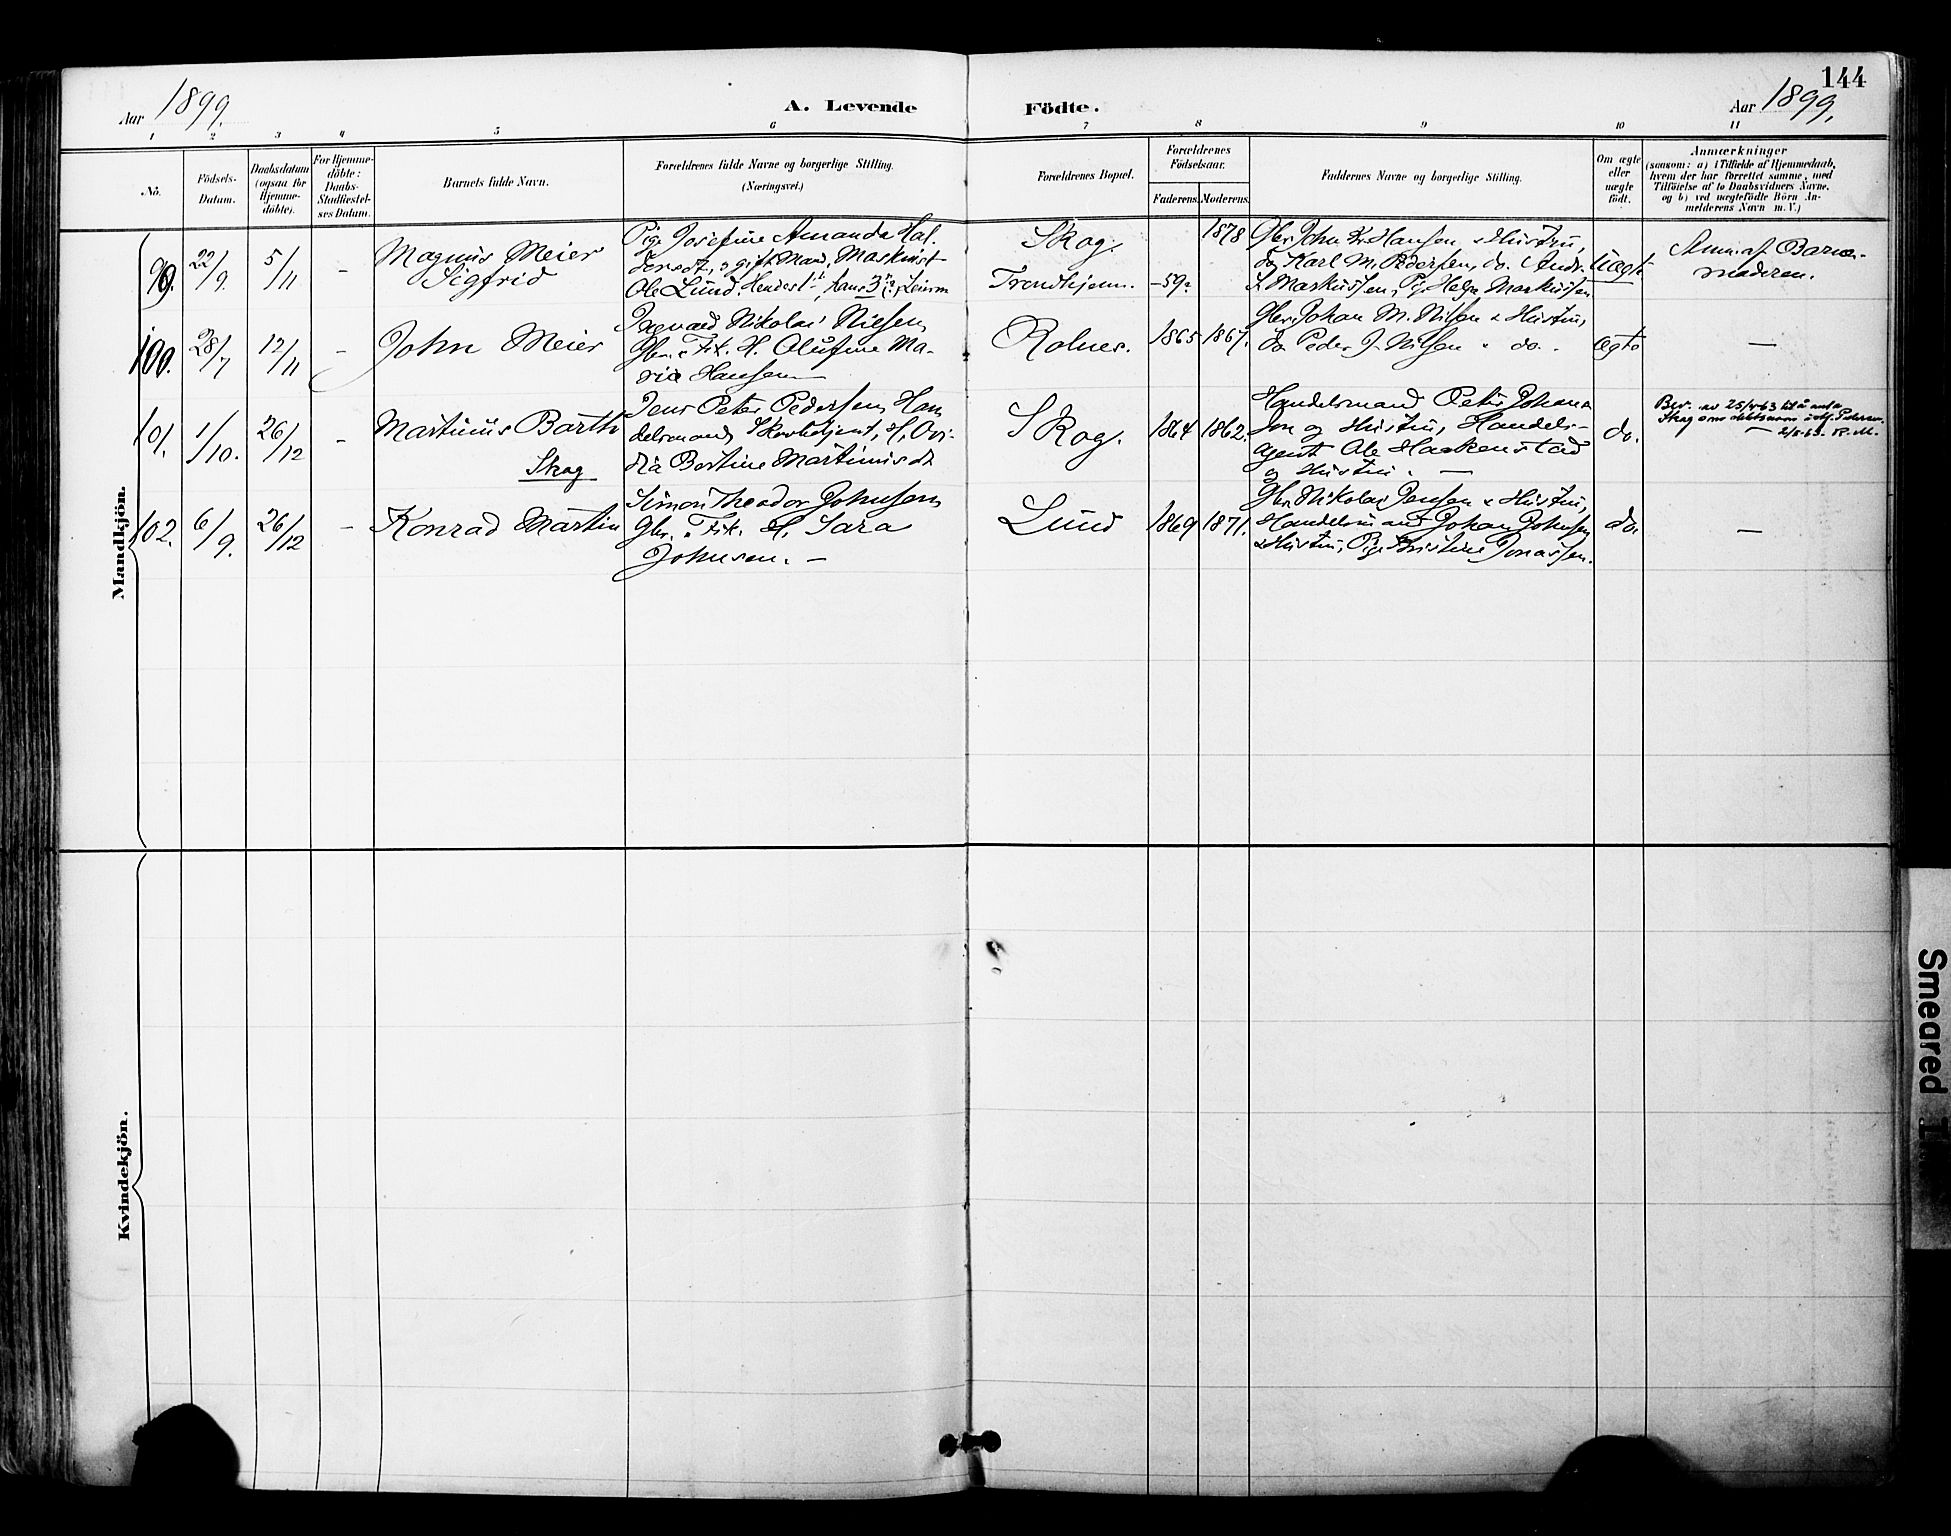 144
Aar 1899. A. Levende Födte. Aar 1899.
1 2 3 4 5 6 7 8 9 10 11
No.
Födsels-
Datum.
Daabsdatum
(ogsaa for
Hjemme-
döbte).
For Hjemme-
döbte:
Daabs-
Stadfæstel-
ses Datum.
Barnets fulde Navn.
Forældrenes fulde Navne og borgerlige Stilling.
(Næringsvei.)
Forældrenes Bopæl.
Forældrenes
Födselsaar.
Faderens. Moderens.
Faddernes Navne og borgerlige Stilling.
Om ægte
eller
uægte
födt.
Anmærkninger
(saasom: a) i Tilfælde af Hjemmedaab,
hvem der har forrettet samme, med
Tilföielse af to Daabsvidners Navne,
og b) ved uægtefödte Börn An-
melderens Navn m. V.)
Mandkjön.
99. 22/9. 5/11 -
Magnus Meier
Sigfrid
Pige Josefine Amanda Hal-
, g gift Mand, Maskinist
Ole Lund. Hendes 1t, hans 3
Skog.
Trondhjem.
-59. 1878
Gbr. John Kr. Hansen, & Hustru,
do Karl M. Pedersen, do. Andr.
Markussen, Pige Helga Markussen
Uægte
Anm. af Barne-
moderen.
100. 28/7 12/11 -
John Meier
Ingvard Nikolai Nilsen
Gbr. & Fisk. H. Olufine Ma-
rie Hansen
Rolnes.
1865 1867.
Gbr. Johan M. Nilsen & Hustru,
do Peder J. Nilsen & do.
Ægte
—
101. 1/10. 26/12 -
Martinus Barth
Skog
Jens Peter Pedersen, Han
delsmand, H. Ovi-
dia Bertine Martinusdt
Skog.
1864 1862.
Handelsmand Peter Johan
sen og Hustru, Handels-
agent Ole Haakenstad
og Hustru. —
do.
Bev. av 25/4-63 til å anta
Skog som slektsnavn istf. Pedersen.
— 2/5-63. R.M.
102. 6/9. 26/12 -
Konrad Martin
Simon Theodor Johnsen
Gbr. & Fisk. H. Sara
Johnsen. —
Lund
1869 1871.
Gbr. Nikolai Jensen & Hustru,
Handelsmand Johan Johnsen
& Hustru, Pige Kristine Jonassen.
do.
—
Kvindekjön.
Smeared